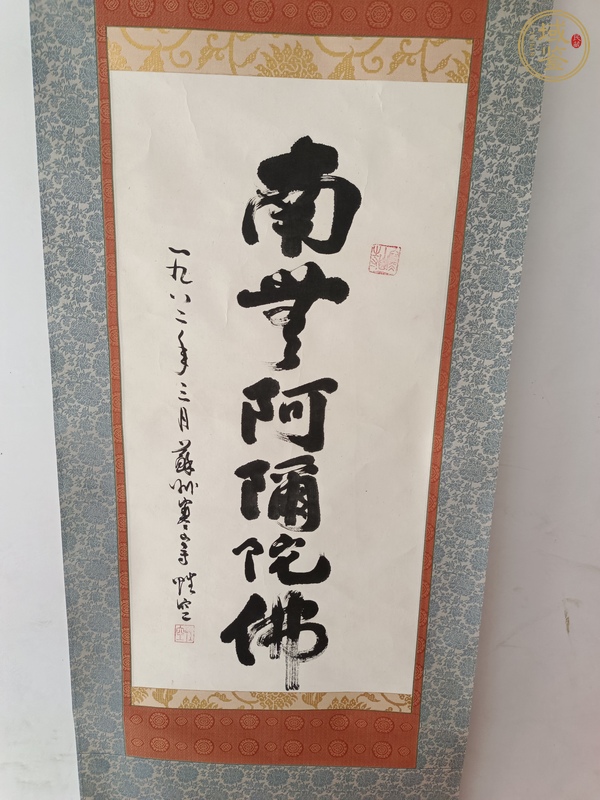 南無阿彌陀佛
一九八二年三月蘇州寒山寺性空